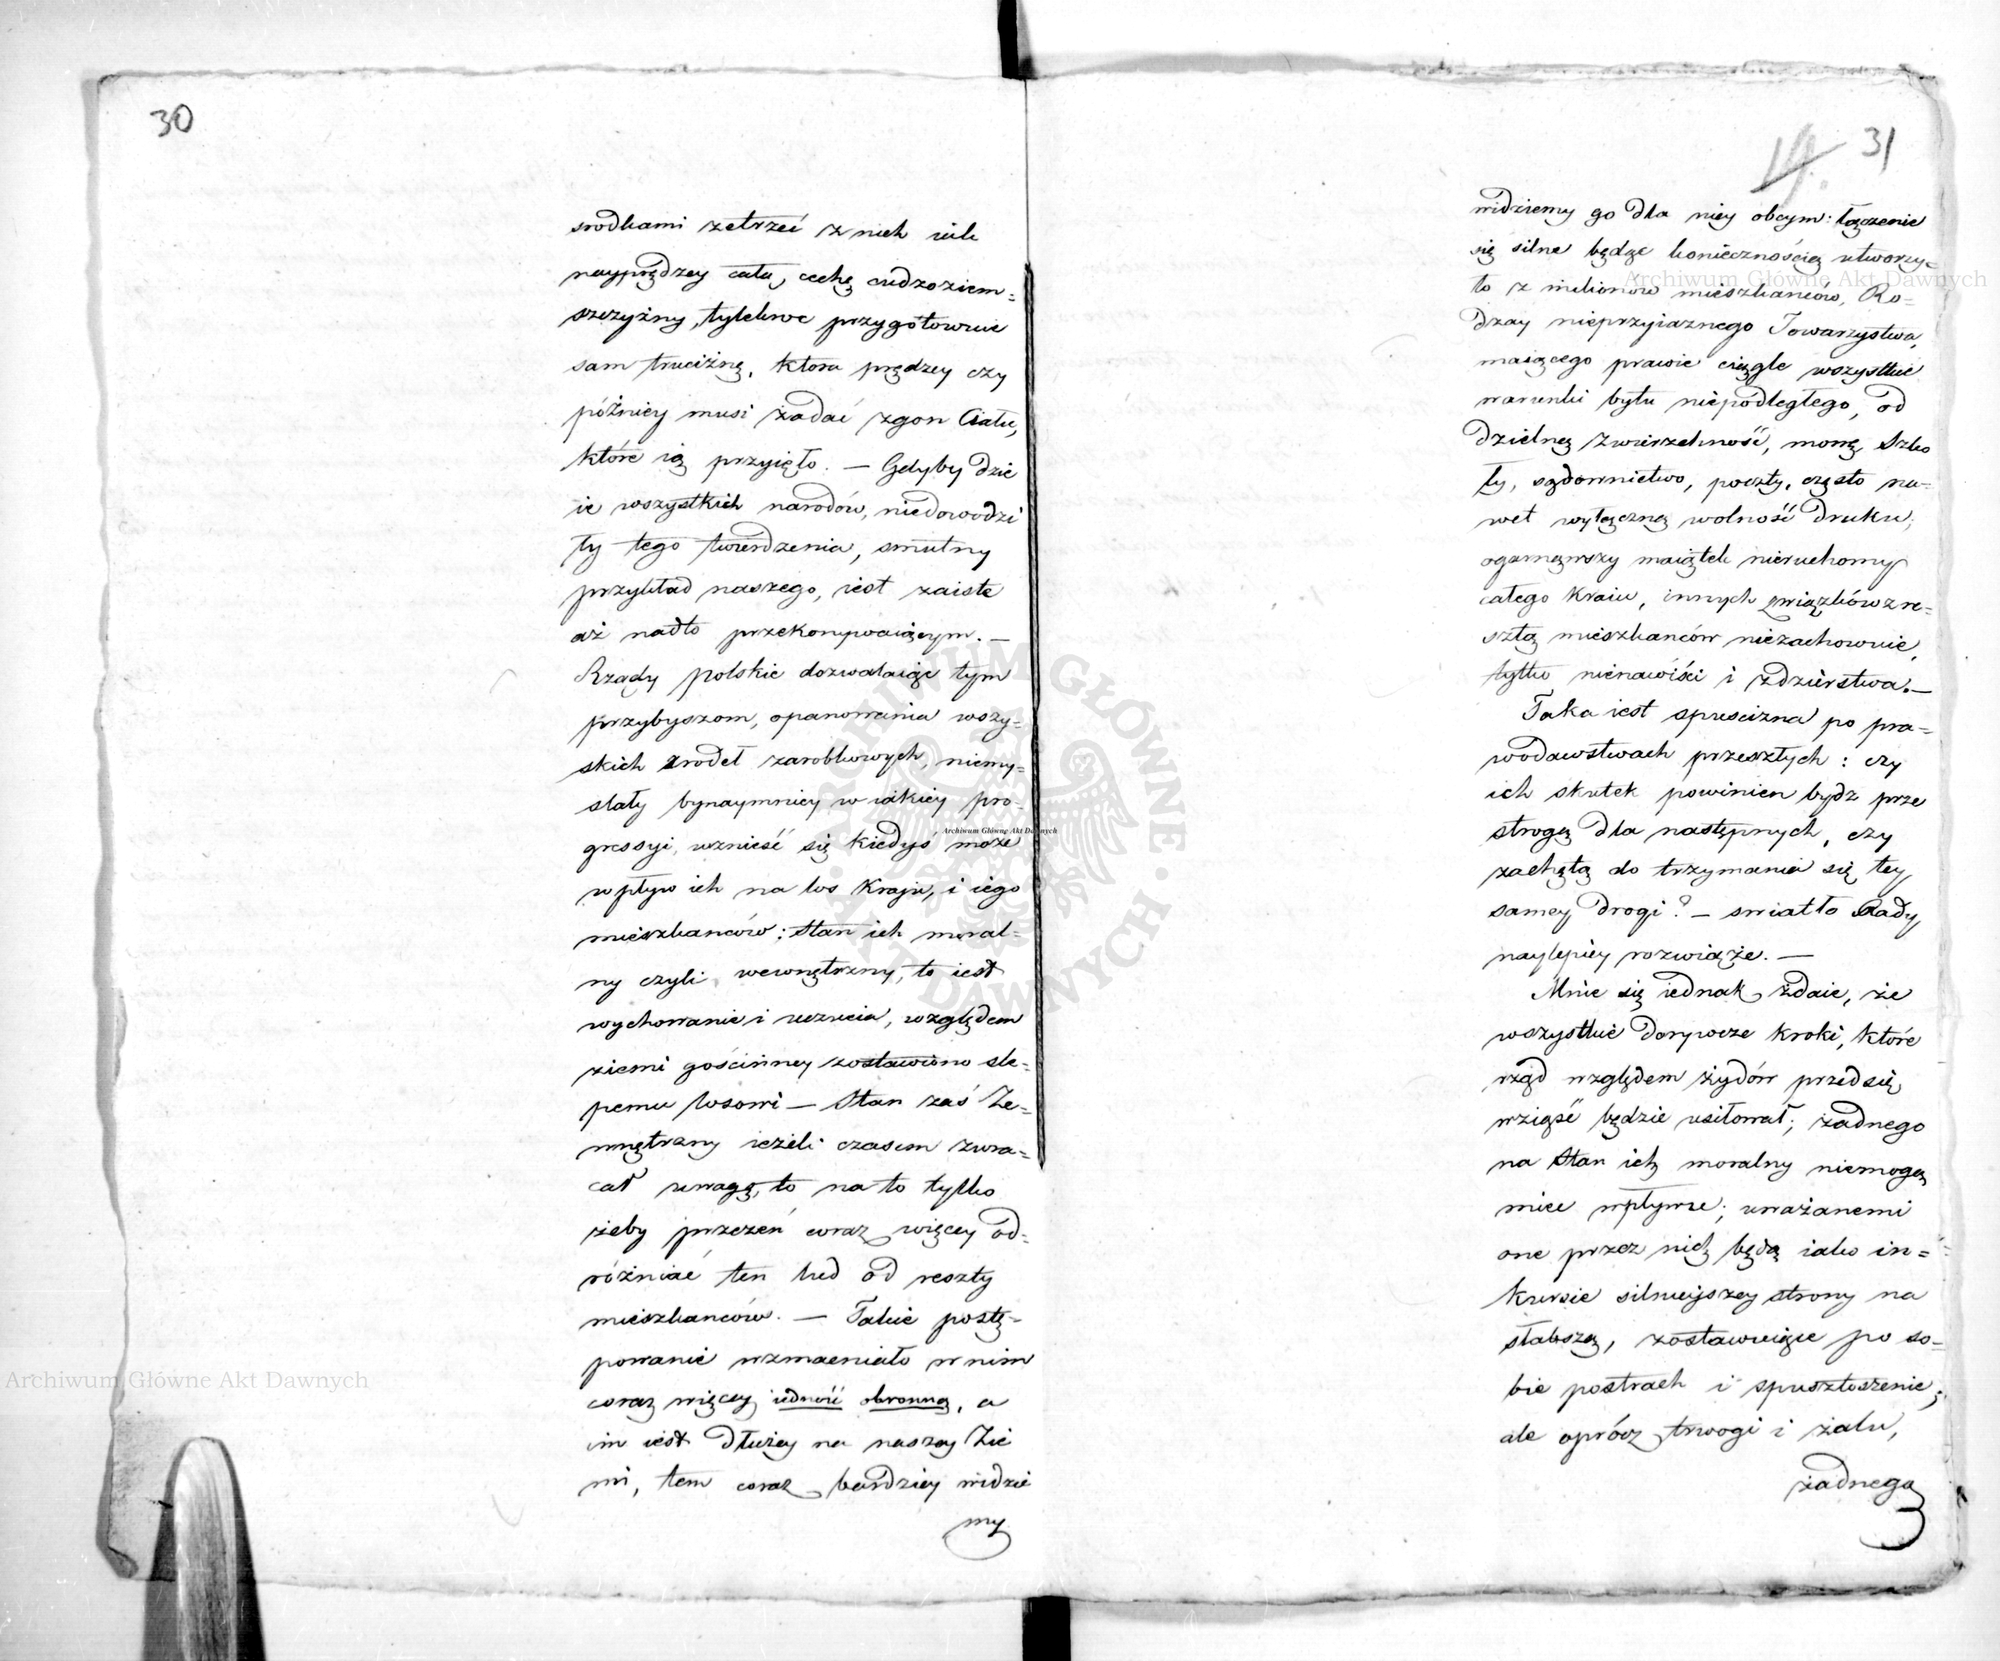 30
srodkami zetrzeć z nich iak
nayprędzey całą cechę cudzoziem=
szczyzny, tylekroc przygotowuie
sam truciznę, ktora prędzey czy
późniey musi zadać zgon Ciału,
które ią przyięło. — Gdyby dzie
ie wszystkich narodów, niedowodzi
ły tego twierdzenia, smutny
przykład naszego, iest zaiste
aż nadto przekonywaiącym. —
Rządy polskie dozwalaiąc tym
przybyszom, opanowania wszy=
skich zrodeł zarobkowych, niemy=
slały bynaymniey w iakiey pro=
gressyi, wznieść się kiedyś może
wpływ ich na los Kraju, i iego
mieszkanców; Stan ich moral=
ny czyli wewnętrzny, to iest
wychowanie i uczucia, względem
ziemi gościnney zostawiono sle=
pemu losowi — Stan zaś Ze=
wnętrzny ieżeli czasem zwra=
cał uwagę, to na to tylko
żeby przezeń coraz więcey od=
różniać ten lud od reszty
mieszkanców. — Takie postę=
powanie wzmacniało w nim
coraz więcey iedność obronną, a
im iest dłużey na naszey Zie
mi, tem coraz bardziey widzie
my
14. 31
widziemy go dla niey obcym: łączenie
się silne będąc koniecznością utworzy=
ło z milionow mieszkanców, Ro=
dzay nieprzyiaznego Towarzystwa,
maiącego prawie ciągle wszystkie
warunki bytu niepodległego, od
dzielną zwierzchność, mowę Szko
ły, sądownictwo, poczty, często na=
wet wyłączną wolność druku;
ogarnąwszy maiątek nieruchomy
całego Kraiu, innych związków z re=
sztą mieszkanców niezachowuie,
tylko nienawiści i zdzierstwa. —
Taka iest spuscizna po pra=
wodawstwach przeszłych: czy
ich skutek powinien bydz prze
strogą dla następnych, czy
zachętą do trzymania się tey
samey drogi? — swiatło Rady
naylepiey rozwiąże. —
Mnie się iednak zdaie, że
wszystkie dorywcze kroki, które
rząd względem żydów przedsię
wziąść będzie usiłował, żadnego
na Stan ich moralny niemogą
miec wpływu; uważanemi
one przez nich będą iako in=
kursie silnieyszey strony na
słabszą, zostawuiące po so=
bie postrach i spustoszenie;
ale oprócz trwogi i żalu,
żadnego
Archiwum Główne Akt Dawnych
Archiwum Główne Akt Dawnych
Archiwum Główne Akt Dawnych
ARCHIWUM GŁÓWNE AKT DAWNYCH